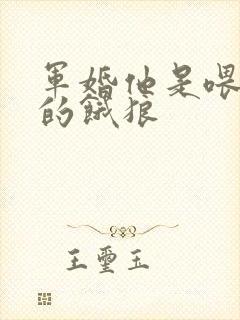 軍婚他是喂
的餓狼
王璽玉